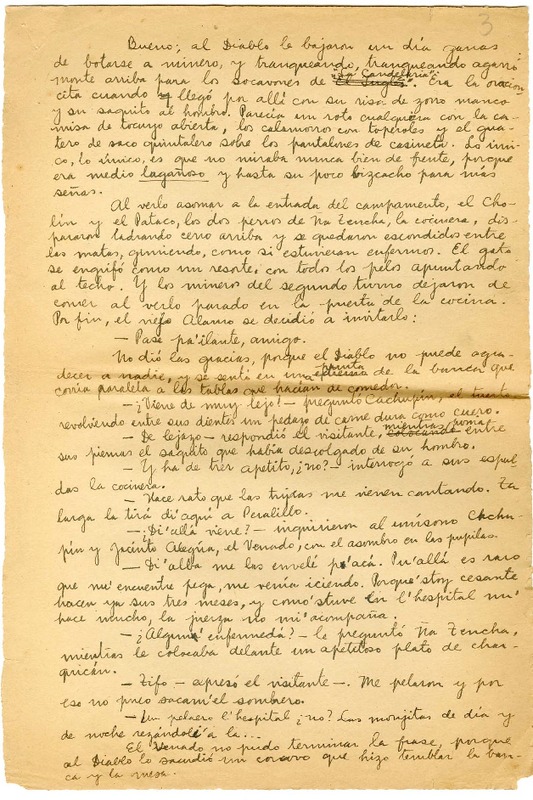 3
Bueno; al Diablo le bajaron un día ganas
de botarse a minero, y tranqueando, tranqueando agarró
monte arriba para los socavones de "La Candelaria". Era la oracion
cita cuando llegó por allí con su risa de zorro manco
y su saquito al hombro. Parecía un roto cualquiera con la ca-
misa de tocuyo abierta, los calamorros con toperoles y el gua-
tero de saco quintalero sobre los pantalones de casineta. Lo úni-
co, lo único, es que no miraba nunca bien de frente, porque
era medio lagañoso y hasta su poco bizcacho para más
señas.
Al verlo asomar a la entrada del campamento, el Cho-
lín y el Pataco, los dos perros de Ña Zencha, la cocinera, dis-
pararon ladrando cerro arriba y se quedaron escondidos entre
las matas, gimiendo, como si estuvieran enfermos. El gato
se engrifó como un resorte, con todos los pelos apuntando
al techo. Y los mineros del segundo turno dejaron de
comer al verlo parado en la puerta de la cocina.
Por fin, el viejo Alamo se decidió a invitarlo:
— Pase pa'ilante, amigo.
No dió las gracias, porque el Diablo no puede agra-
decer a nadie, y se sentó en una punta de la banca que
corría paralela a las tablas que hacían de comedor.
— ¿Viene de muy lejo? — preguntó Cachupín, el tuerto
revolviendo entre sus dientes un pedazo de carne dura como cuero.
— De lejazo — respondió el visitante, mientras ponía entre
sus piernas el saquito que había descolgado de su hombro.
— Y ha de trer apetito, ¿no? — interrogó a sus espal-
das la cocinera.
— Hace rato que las tripas me vienen cantando. Ta
larga la tirá di'aquí a Peralillo.
— ¿Di'allá viene? — inquirieron al unísono Cachu-
pín y Jacinto Alegría, el Venado, con el asombro en las pupilas.
— Di'alba me las envelé p'acá. Pu'allá es raro
que mi'encuentre pega, me venía iciendo. Porque'stoy cesante
hacen ya sus tres meses, y como'stuve en l'hespital no'
hace mucho, la juerza no mi'acompaña.
— ¿Alguna' enfermedá? — le preguntó Ña Zencha,
mientras le colocaba delante un apetitoso plato de char-
quicán.
— Tifo — apresó el visitante —. Me pelaron y por
eso no pueo sacam'el sombrero.
— Un pelaero l'hespital ¿no? Las monjitas de día y
de noche rezándole a la...
El Venado no pudo terminar la frase, porque
al Diablo lo sacudió un corcovo que hizo temblar la ban-
ca y la mesa.